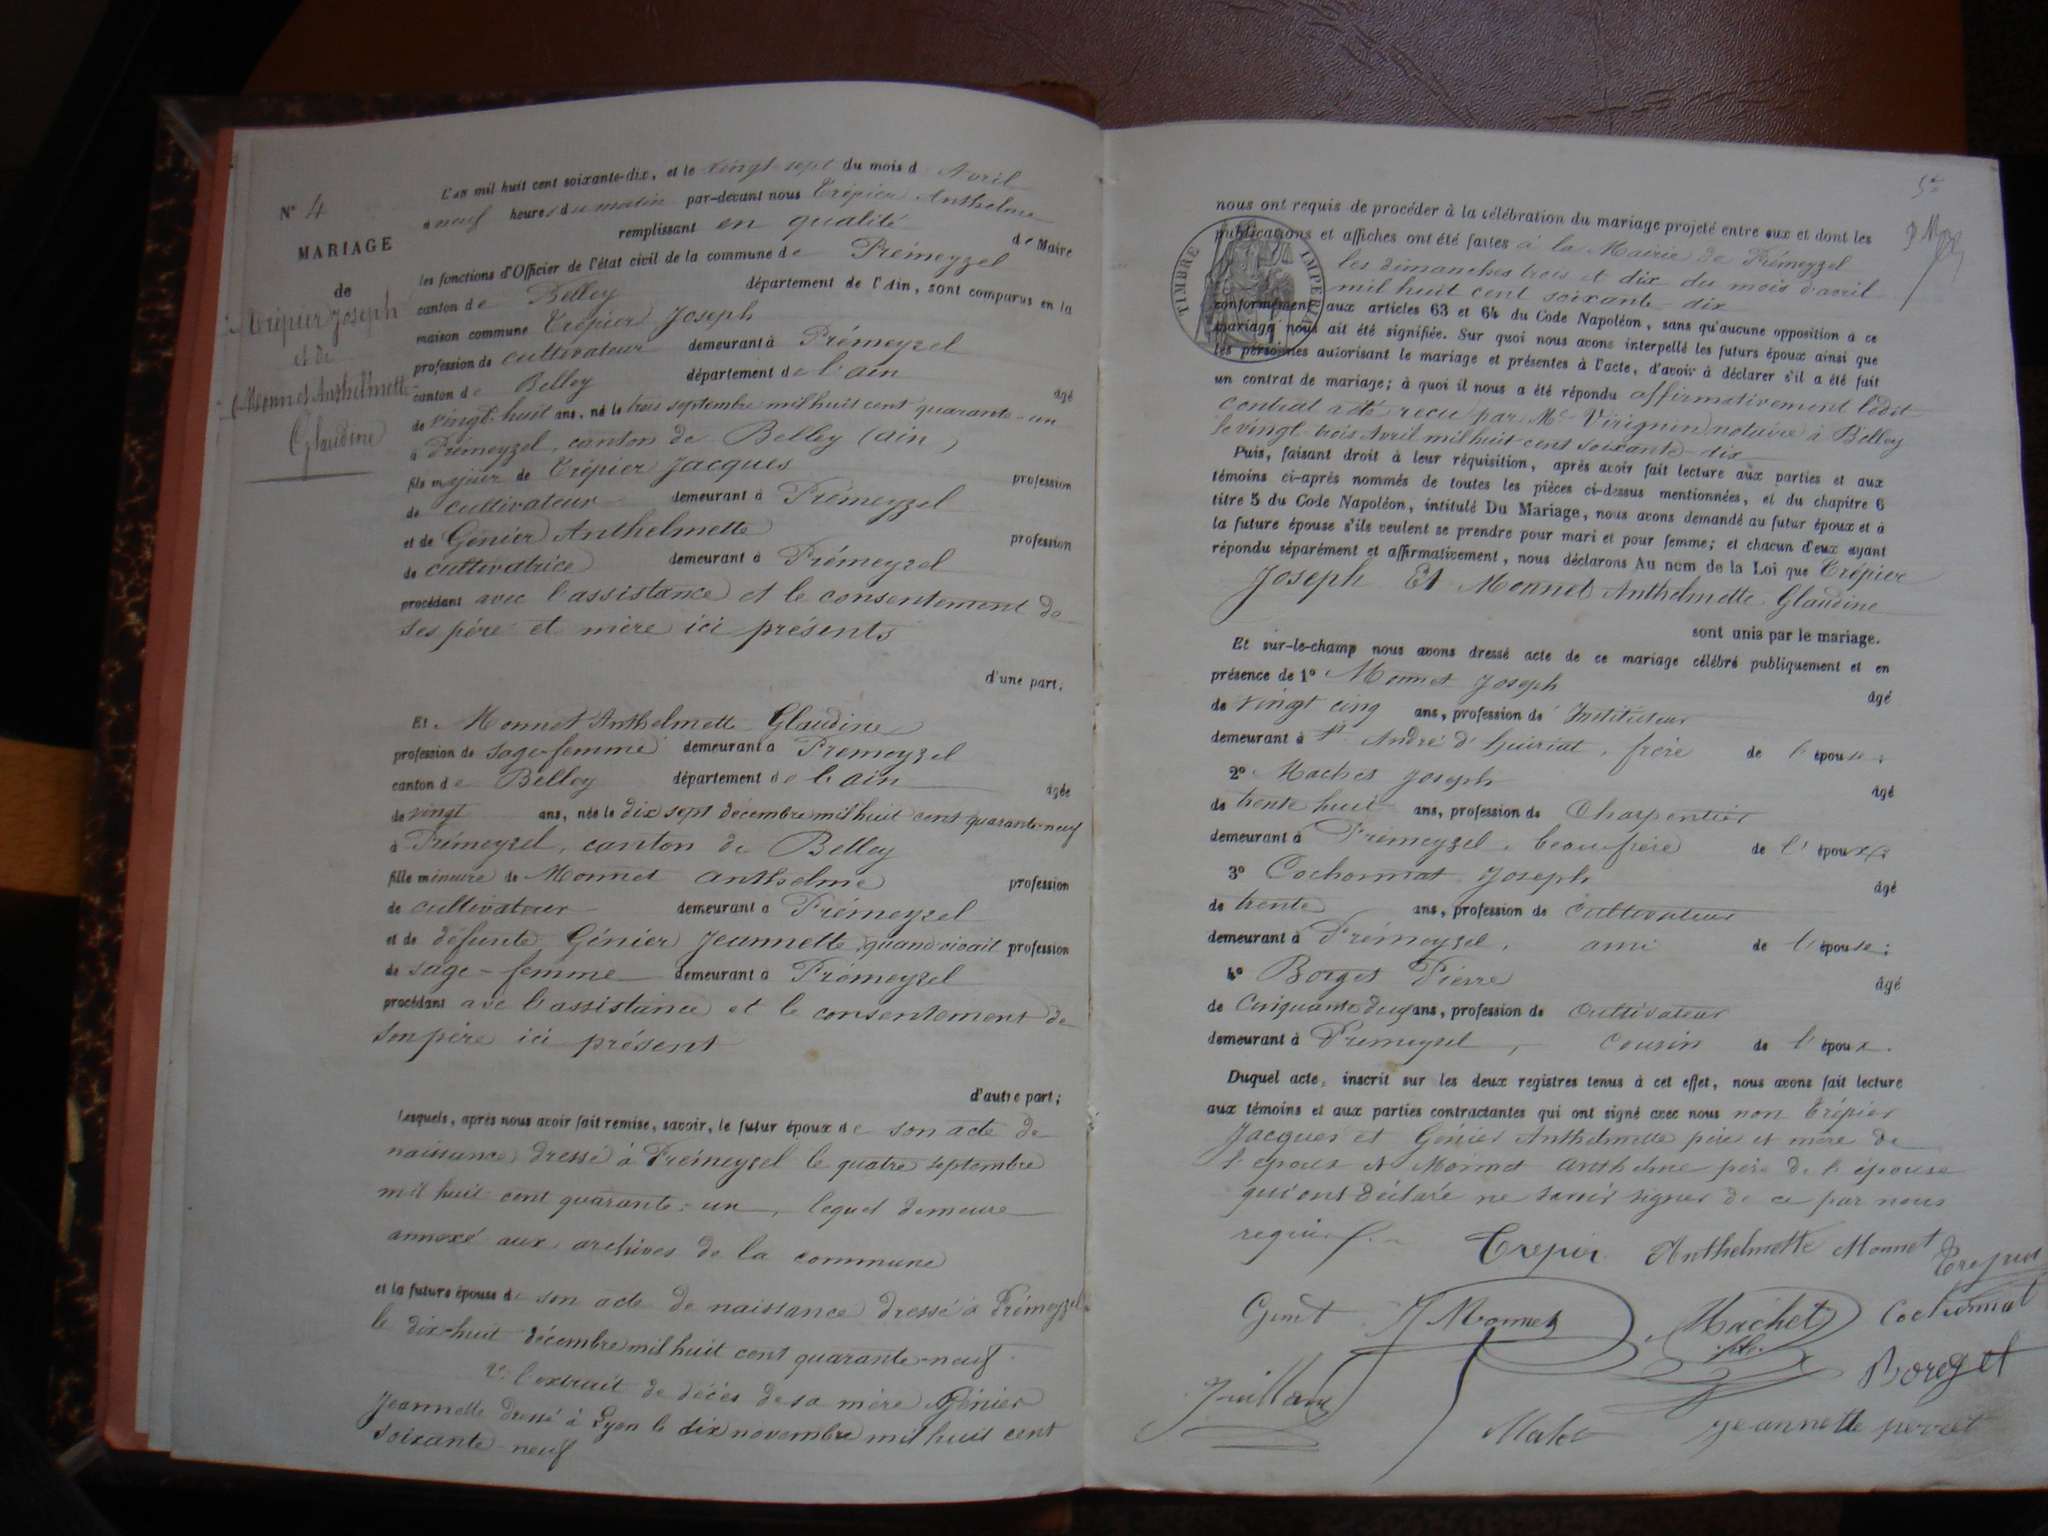 N° 4
MARIAGE
de
Trépier Joseph
et de
Monnet Anthelmette
Glaudine
L'an mil huit cent soixante-dix, et le vingt-sept du mois d Avril
a neuf heures du matin par-devant nous Trépier Anthelme
remplissant en qualité de Maire
les fonctions d'Officier de l'état civil de la commune de Prémeyzel
canton de Belley département de l'Ain, sont comparus en la
maison commune Trépier Joseph
profession de cultivateur demeurant à Prémeyzel
canton de Belley département de l'ain âgé
de vingt-huit ans, né le trois septembre mil huit cent quarante-un
à Prémeyzel, canton de Belley (ain)
fils majeur de Trépier Jacques profession
de cultivateur demeurant à Prémeyzel
et de Génier Anthelmette profession
de cultivatrice demeurant à Prémeyzel
procédant avec l'assistance et le consentement de
ses père et mère ici présents
d'une part;
Et Monnet Anthelmette Glaudine
profession de sage-femme demeurant à Prémeyzel
canton de Belley département de l'ain âgée
de vingt ans, née le dix sept décembre mil huit cent quarante-neuf
à Prémeyzel, canton de Belley
fille mineure de Monnet Anthelme profession
de cultivateur demeurant à Prémeyzel
et de défunte Génier Jeannette, quand vivait profession
de sage-femme demeurant à Prémeyzel
procédant avec l'assistance et le consentement de
son père ici présent
d'autre part;
Lesquels, après nous avoir fait remise, savoir, le futur époux de son acte de
naissance dressé à Prémeyzel le quatre septembre
mil huit cent quarante-un, lequel demeure
annexé aux archives de la commune
et la future épouse de son acte de naissance dressé à Prémeyzel
le dix-huit décembre mil huit cent quarante-neuf.
l'extrait de décès de sa mère Génier
Jeannette dressé à Lyon le dix novembre mil huit cent
soixante-neuf
nous ont requis de procéder à la célébration du mariage projeté entre eux et dont les
publications et affiches ont été faites à la Mairie de Prémeyzel
les dimanches trois et dix du mois d'avril
mil huit cent soixante-dix
TIMBRE IMPERIAL
conformément aux articles 63 et 64 du Code Napoléon, sans qu'aucune opposition à ce
mariage nous ait été signifiée. Sur quoi nous avons interpellé les futurs époux ainsi que
les personnes autorisant le mariage et présentes à l'acte, d'avoir à déclarer s'il a été fait
un contrat de mariage; à quoi il nous a été répondu affirmativement ledit
contrat a été reçu par Me Virignin notaire à Belley
le vingt-trois Avril mil huit cent soixante-dix
Puis, faisant droit à leur réquisition, après avoir fait lecture aux parties et aux
témoins ci-après nommés de toutes les pièces ci-dessus mentionnées, et du chapitre 6
titre 5 du Code Napoléon, intitulé Du Mariage, nous avons demandé au futur époux et à
la future épouse s'ils veulent se prendre pour mari et pour femme; et chacun d'eux ayant
répondu séparément et affirmativement, nous déclarons Au nom de la Loi que Trépier
Joseph Et Monnet Anthelmette Glaudine
sont unis par le mariage.
Et sur-le-champ nous avons dressé acte de ce mariage célébré publiquement et en
présence de 1° Monnet Joseph âgé
de vingt cinq ans, profession de Instituteur
demeurant à St André d'huiriat, frère de l'épouse;
2° Machet Joseph âgé
de trente huit ans, profession de Charpentier
demeurant à Prémeyzel, beau-frère de l'époux;
3° Cochonnat Joseph âgé
de trente ans, profession de cultivateur
demeurant à Prémeyzel, ami de l'épouse;
4° Borget Pierre âgé
de Cinquante deux ans, profession de cultivateur
demeurant à Prémeyzel, cousin de l'époux.
Duquel acte, inscrit sur les deux registres tenus à cet effet, nous avons fait lecture
aux témoins et aux parties contractantes qui ont signé avec nous non Trépier
Jacques et Génier Anthelmette père et mère de
l'époux et Monnet Anthelme père de l'épouse
qui ont déclaré ne savoir signer de ce par nous
requis
Trepier Anthelmette Monnet
J Monnet Machet Cochonnat
Borget
jeannette perret